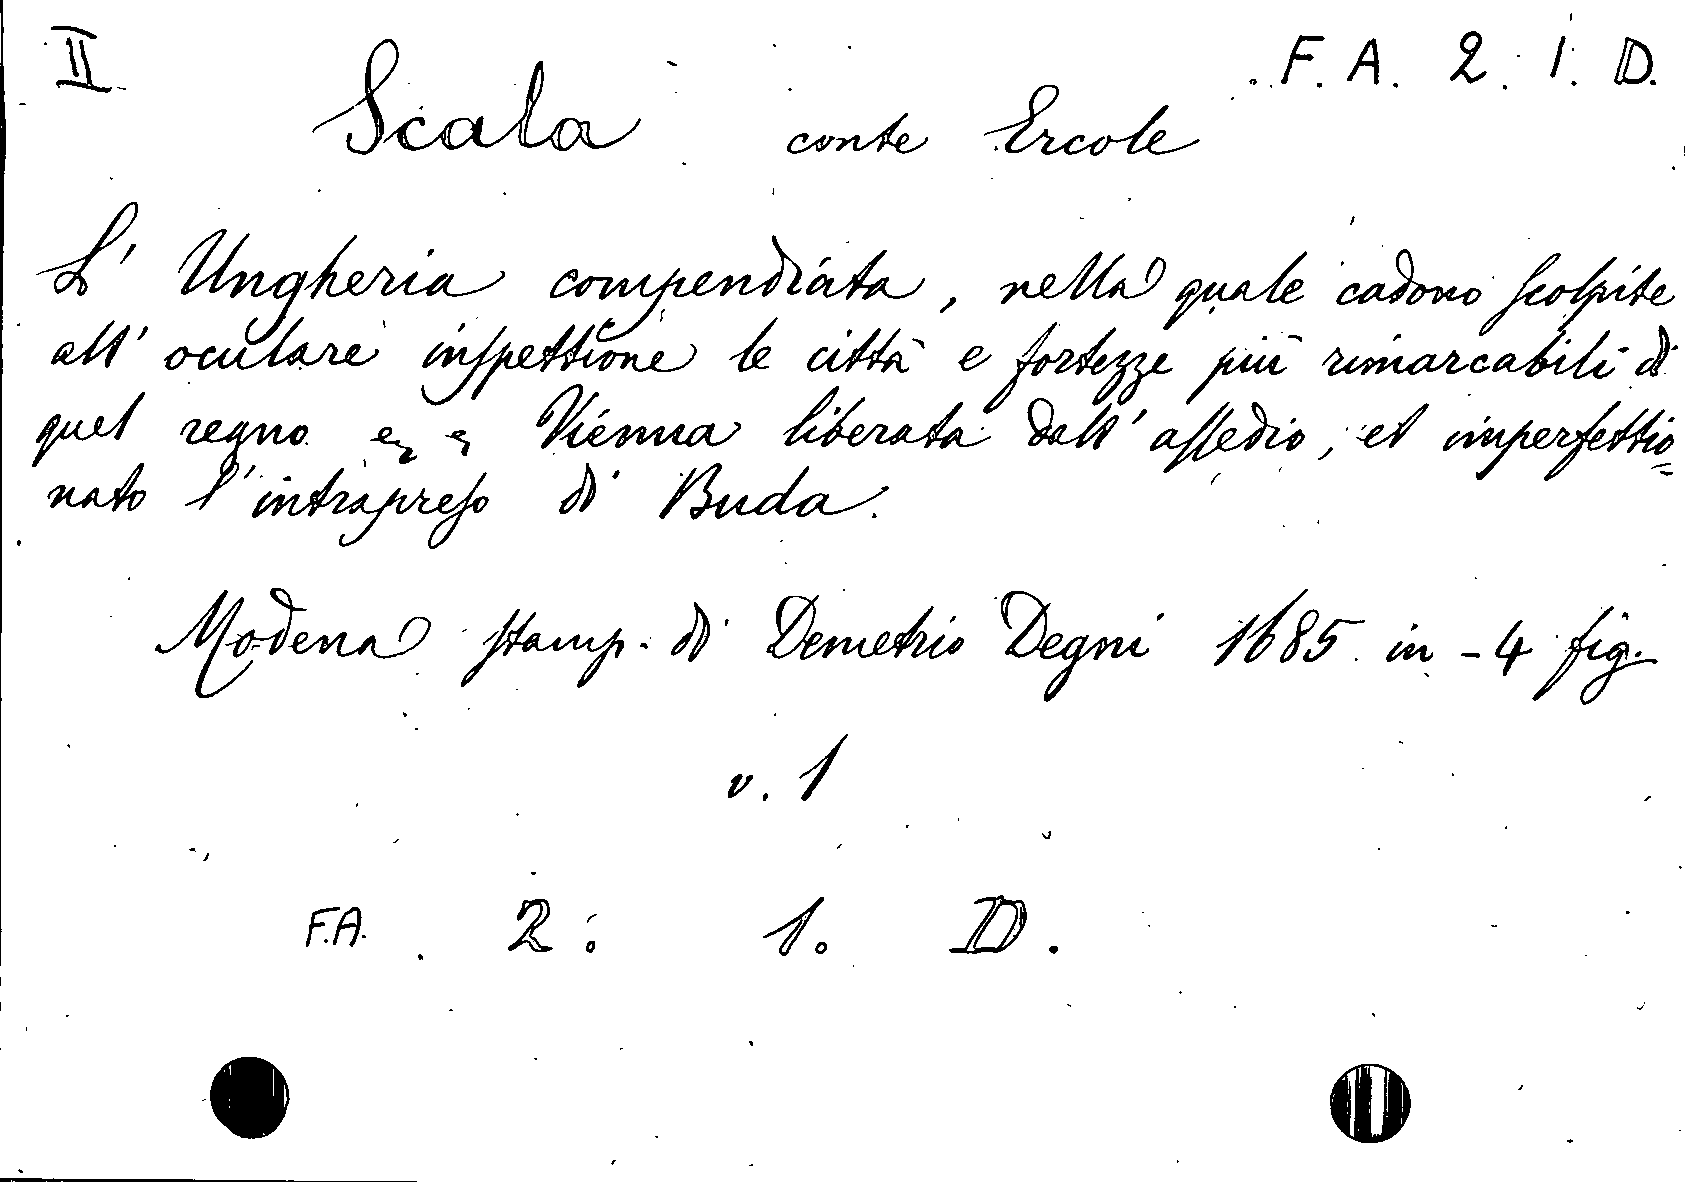 II
F. A. 2. 1. D.
Scala conte Ercole
L' Ungheria compendiata, nella quale cadono scolpite
all' oculare inspettione le città e fortezze più rimarcabili di
quel regno Vienna liberata dall' assedio, et imperfettio=
nato l'intrapreso di Buda.
Modena stamp. di Demetrio Degni 1685 in-4 fig.
v. 1
F.A. 2: 1. D.